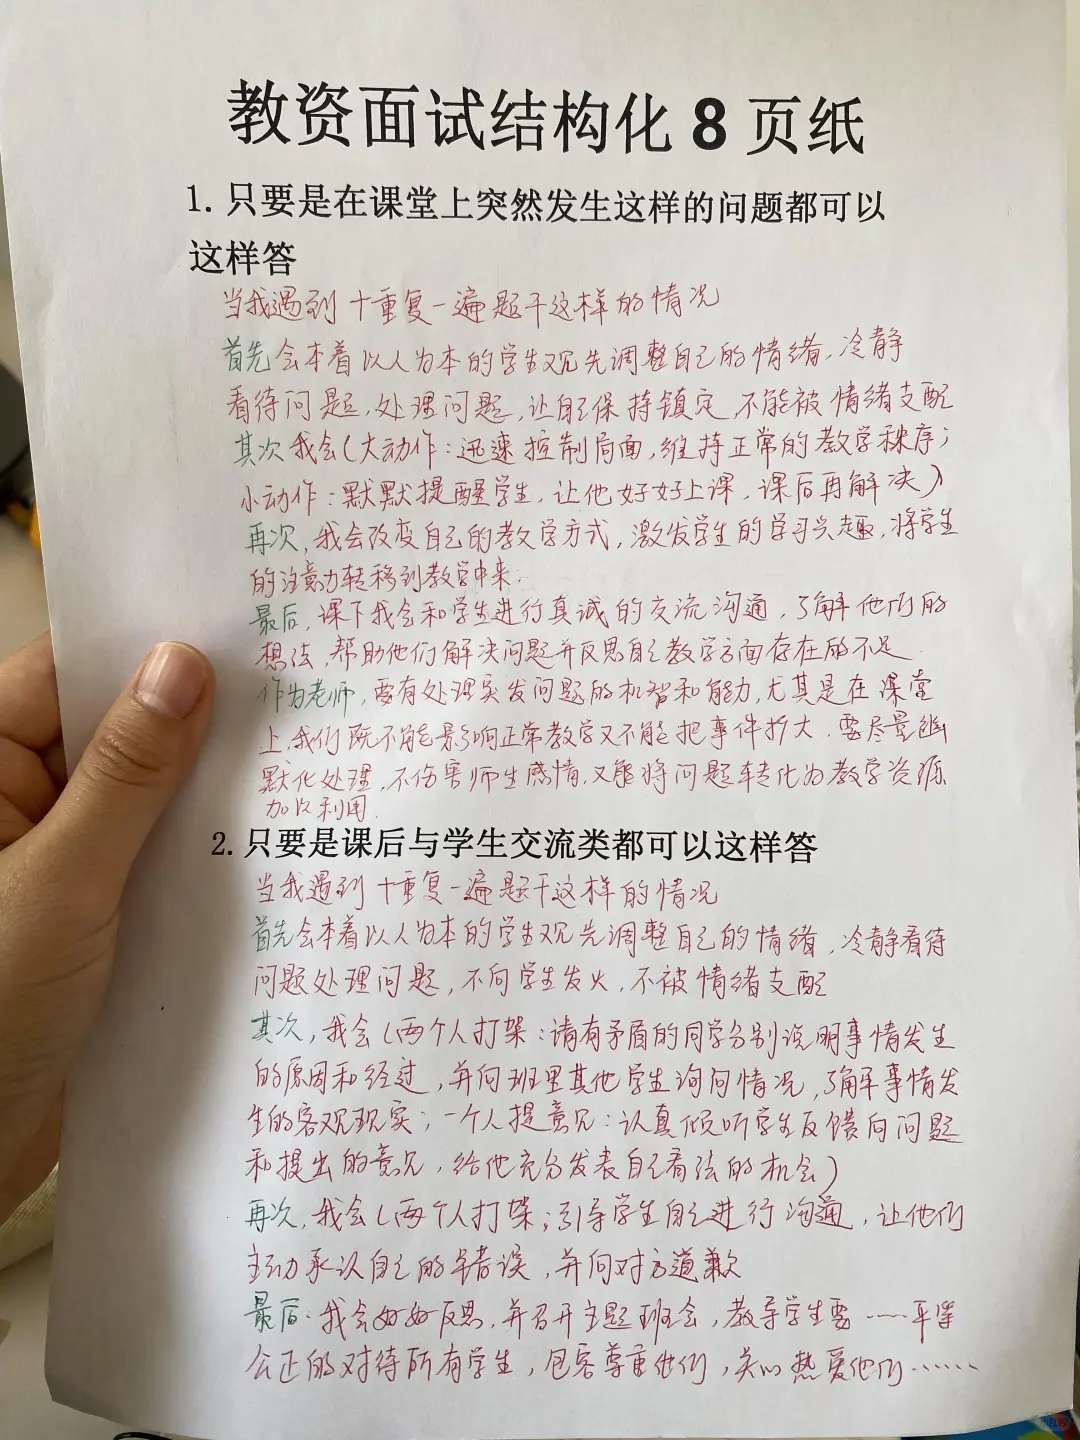 教资面试结构化 8 页纸
1. 只要是在课堂上突然发生这样的问题都可以
这样答
当我遇到十重复一遍题干这样的情况
首先会本着以人为本的学生观先调整自己的情绪,冷静
看待问题,处理问题,让自己保持镇定,不能被情绪支配
其次我会(大动作:迅速控制局面,维持正常的教学秩序;
小动作:默默提醒学生,让他好好上课,课后再解决)
再次,我会改变自己的教学方式,激发学生的学习兴趣,将学生
的注意力转移到教学中来.
最后,课下我会和学生进行真诚的交流沟通,了解他们的
想法,帮助他们解决问题并反思自己教学方面存在的不足
作为老师,要有处理突发问题的机智和能力,尤其是在课堂
上,我们既不能影响正常教学又不能把事件扩大.要尽量幽
默化处理,不伤害师生感情,又能将问题转化为教学资源
加以利用.
2. 只要是课后与学生交流类都可以这样答
当我遇到十重复一遍题干这样的情况
首先会本着以人为本的学生观先调整自己的情绪,冷静看待
问题处理问题,不向学生发火,不被情绪支配
其次,我会(两个人打架:请有矛盾的同学分别说明事情发生
的原因和经过,并向班里其他学生询问情况,了解事情发
生的客观现实;一个人提意见:认真倾听学生反馈的问题
和提出的意见,给他充分发表自己看法的机会)
再次,我会(两个人打架;引导学生自己进行沟通,让他们
主动承认自己的错误,并向对方道歉
最后.我会好好反思,并召开主题班会,教导学生要……平等
公正的对待所有学生,包容尊重他们,关心热爱他们……